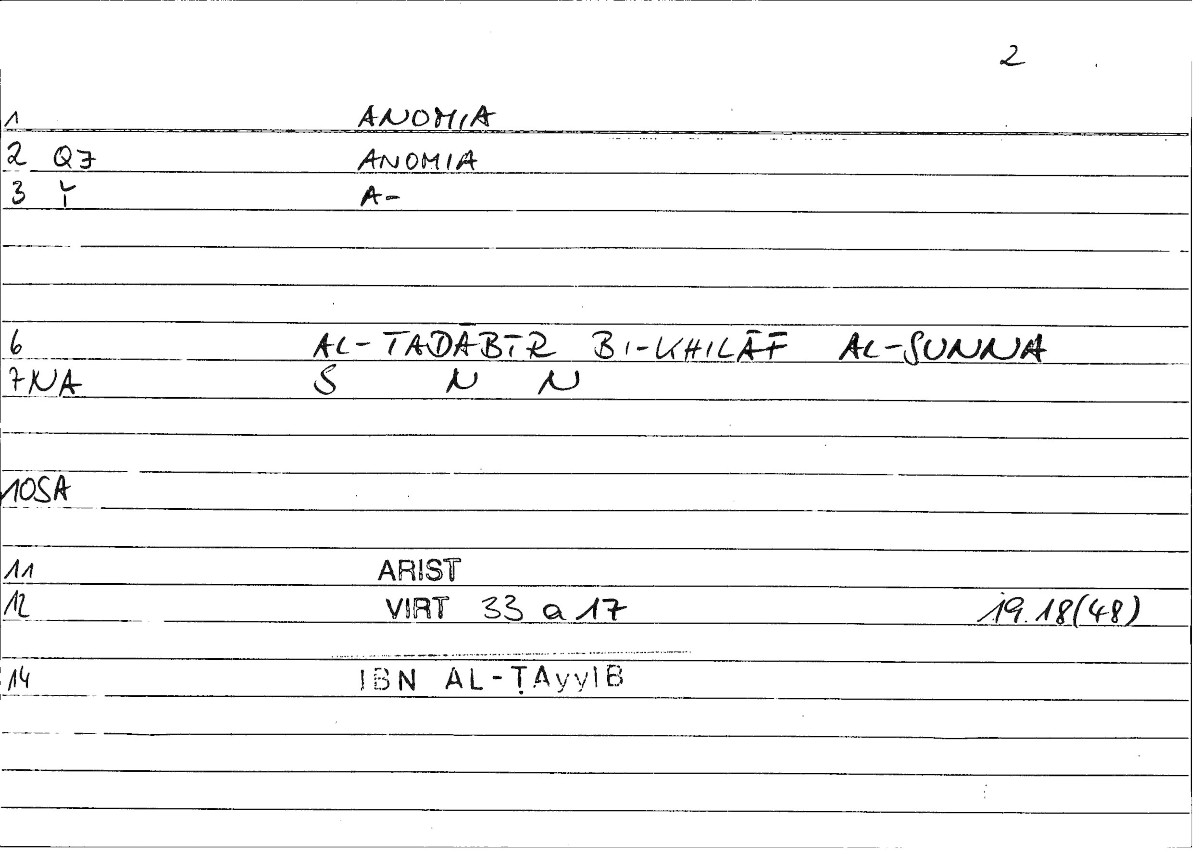 2
1 ANOMIA
2 Q7 ANOMIA
3 Y A-
6 AL-TADĀBĪR BI-KHILĀF AL-SUNNA
7 NA S N N
10 SA
11 ARIST
12 VIRT 33 a 17 19.18(48)
14 IBN AL-ṬAyyIB